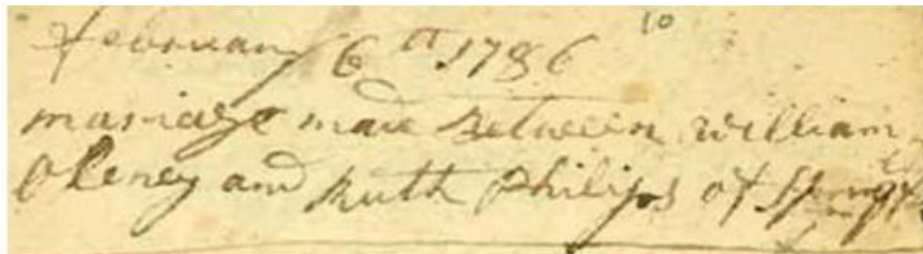 february 6th 1786 10
mariage made Between william
Okeney and Ruth Philips of